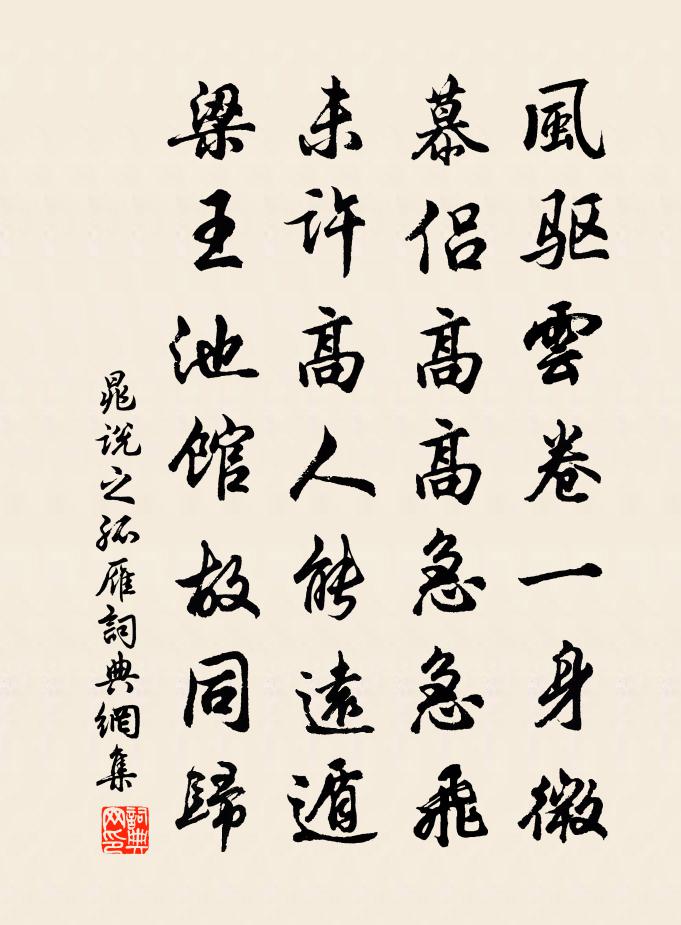 風驱雲卷一身微
慕侣高高急急飛
未许高人能遠遁
梁王池馆故同歸
晁说之孤雁詞典網集
詞典網印